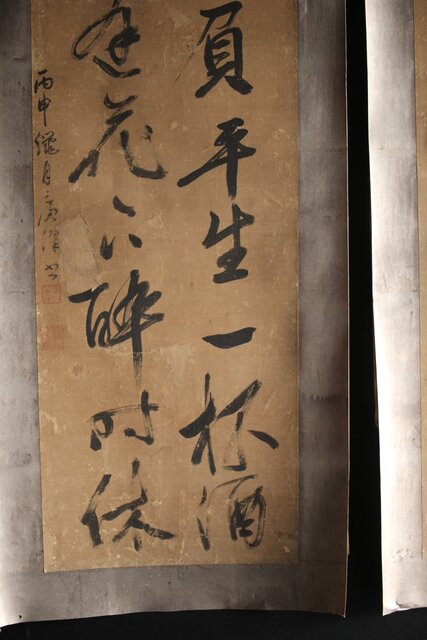 負平生一杯酒
花下醉時休
丙申
月